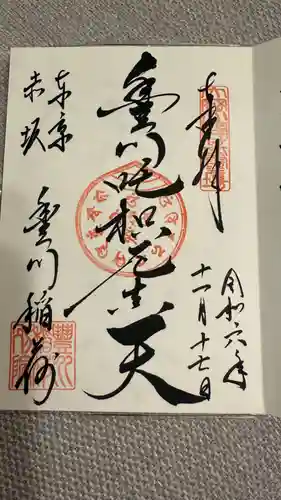 奉拝
令和六年
十一月十七日
豊川吒枳尼真天
東京
赤坂
豊川稲荷